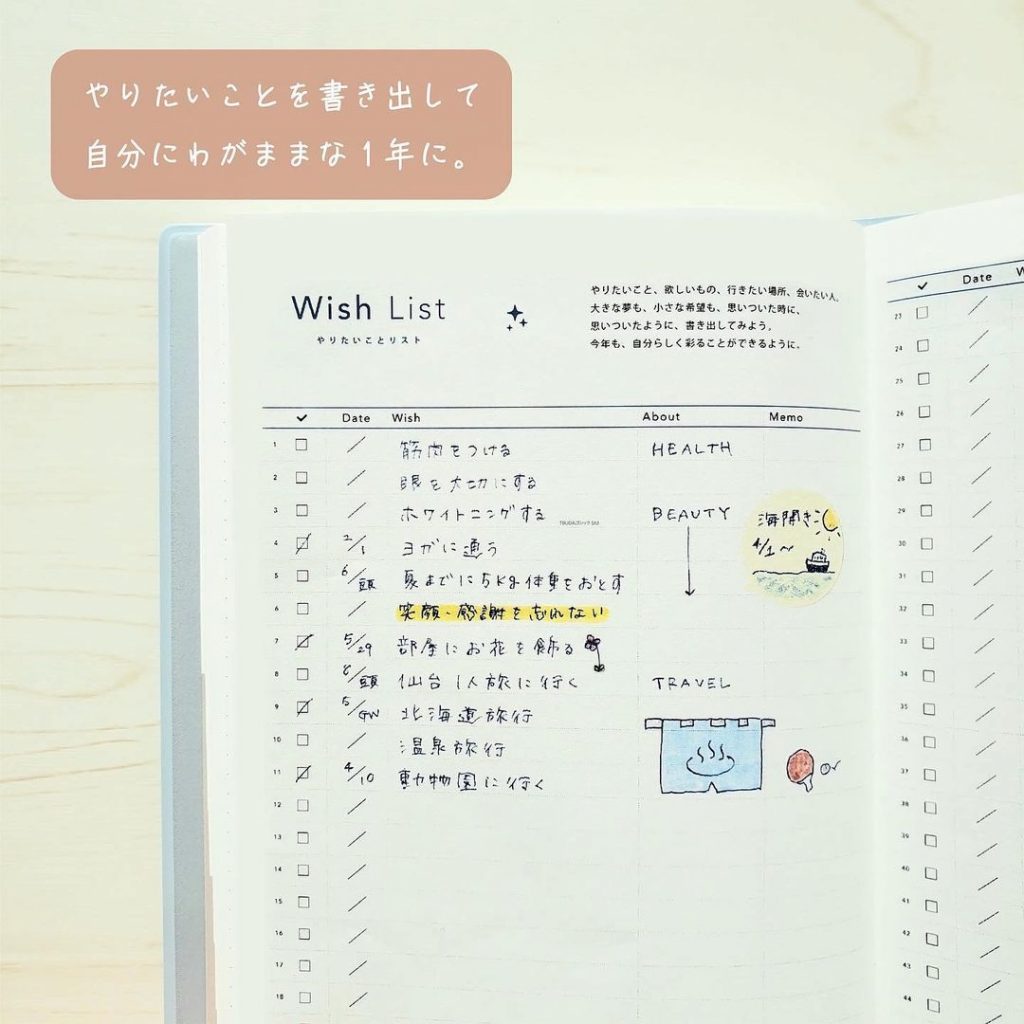 やりたいことを書き出して
自分にわがままな1年に。
Wish List
やりたいことリスト
やりたいこと、欲しいもの、行きたい場所、会いたい人。
大きな夢も、小さな希望も、思いついた時に、
思いついたように、書き出してみよう。
今年も、自分らしく彩ることができるように。
✓ Date Wish About Memo
1 / 筋肉をつける HEALTH
2 / 眼を大切にする
3 / ホワイトニングする BEAUTY
4 2/1 ヨガに通う
海開き
4/1~
5 6/頭 夏までに5kg体重をおとす
6 / 笑顔・感謝を忘れない
7 5/29 部屋にお花を飾る
8 8/頭 仙台1人旅に行く TRAVEL
9 5/GW 北海道旅行
10 / 温泉旅行
11 4/10 動物園に行く
12 /
13 /
14 /
15 /
16 /
17 /
18 /
✓ Date W
23 /
24 /
25 /
26 /
27 /
28 /
29 /
30 /
31 /
32 /
33 /
34 /
35 /
36 /
37 /
38 /
39 /
40 /
41 /
42 /
43 /
44 /